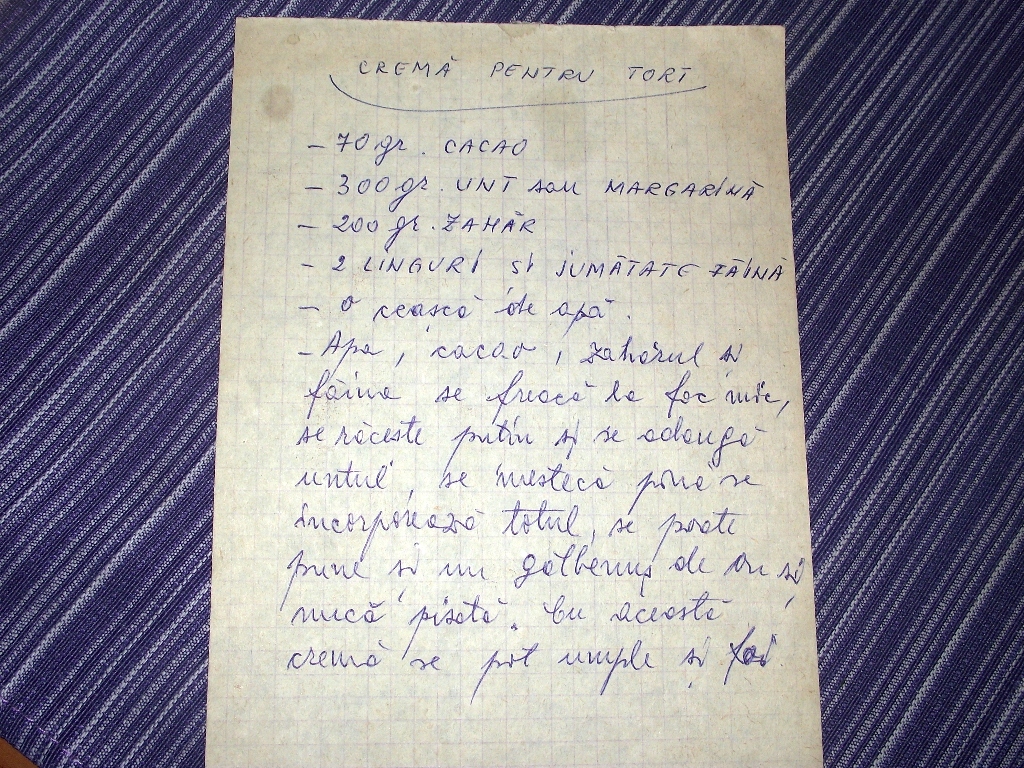 CREMĂ PENTRU TORT
- 70 gr. CACAO
- 300 gr. UNT sau MARGARINĂ
- 200 gr. ZAHĂR
- 2 LINGURI ȘI JUMĂTATE FĂINĂ
- O ceașcă de apă.
- Apa, cacao, zahărul și
făina se freacă la foc mic,
se răcește puțin și se adaugă
untul, se mestecă până se
încorporează totul, se poate
pune și un gălbenuș de ou și
nucă pisată. Cu această
cremă se pot umple și